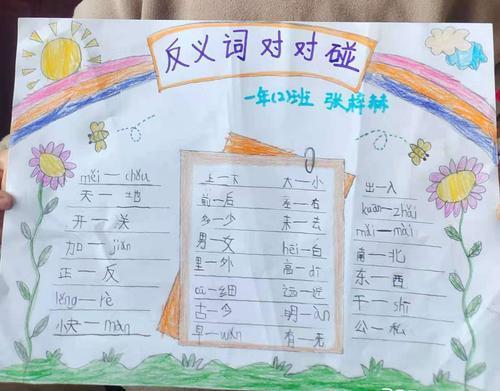 反义词对对碰
一年(2)班 张梓赫
měi—chǒu
天—地
开—关
加—jiǎn
正—反
lěng—rè
快—màn
上—下
前—后
多—少
男—女
里—外
cū—细
古—今
早—wǎn
大—小
左—右
来—去
hēi—白
高—dī
远—近
明—àn
有—无
出—入
kuān—zhǎi
mǎi—mài
南—北
东—西
干—shī
公—私